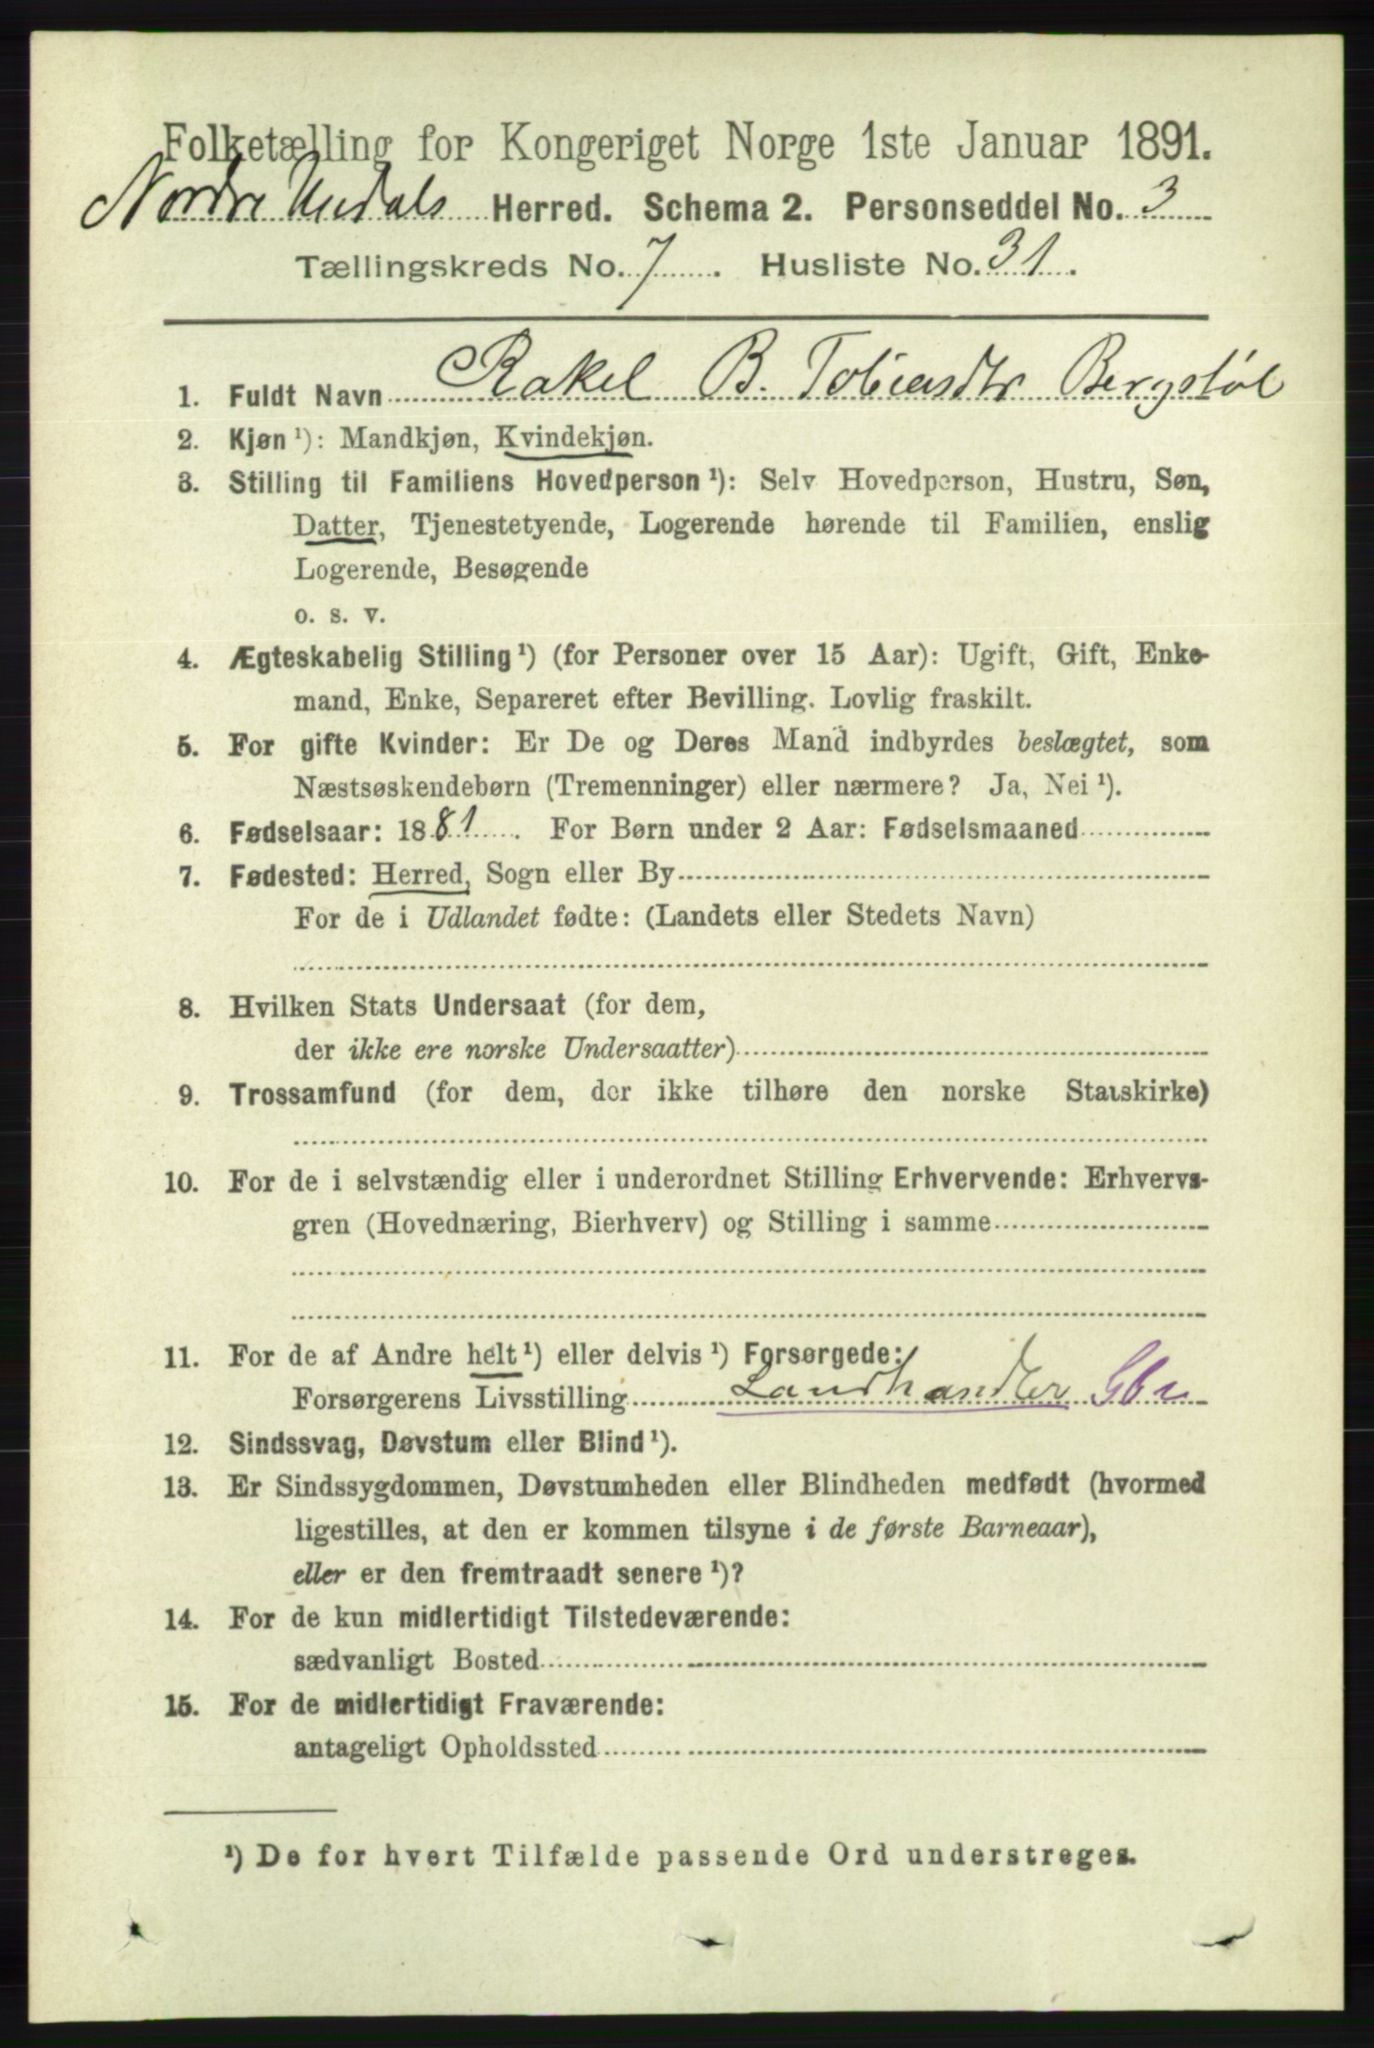 Folketælling for Kongeriget Norge 1ste Januar 1891.
Nordre Undals Herred. Schema 2. Personseddel No. 3
Tællingskreds No. 7. Husliste No. 31.
1. Fuldt Navn Rakel B. Tobiasdtr Bergstøl
2. Kjøn ¹): Mandkjøn, Kvindekjøn.
3. Stilling til Familiens Hovedperson ¹): Selv Hovedperson, Hustru, Søn,
Datter, Tjenestetyende, Logerende hørende til Familien, enslig
Logerende, Besøgende
o. s. v.
4. Ægteskabelig Stilling ¹) (for Personer over 15 Aar): Ugift, Gift, Enke-
mand, Enke, Separeret efter Bevilling. Lovlig fraskilt.
5. For gifte Kvinder: Er De og Deres Mand indbyrdes beslægtet, som
Næstsøskendebørn (Tremenninger) eller nærmere? Ja, Nei ¹).
6. Fødselsaar: 1881. For Børn under 2 Aar: Fødselsmaaned
7. Fødested: Herred, Sogn eller By
For de i Udlandet fødte: (Landets eller Stedets Navn)
8. Hvilken Stats Undersaat (for dem,
der ikke ere norske Undersaatter)
9. Trossamfund (for dem, der ikke tilhøre den norske Statskirke)
10. For de i selvstændig eller i underordnet Stilling Erhvervende: Erhvervs-
gren (Hovednæring, Bierhverv) og Stilling i samme
11. For de af Andre helt ¹) eller delvis ¹) Forsørgede:
Forsørgerens Livsstilling Landhandler
12. Sindssvag, Døvstum eller Blind ¹).
13. Er Sindssygdommen, Døvstumheden eller Blindheden medfødt (hvormed
ligestilles, at den er kommen tilsyne i de første Barneaar),
eller er den fremtraadt senere ¹)?
14. For de kun midlertidigt Tilstedeværende:
sædvanligt Bosted
15. For de midlertidigt Fraværende:
antageligt Opholdssted
¹) De for hvert Tilfælde passende Ord understreges.